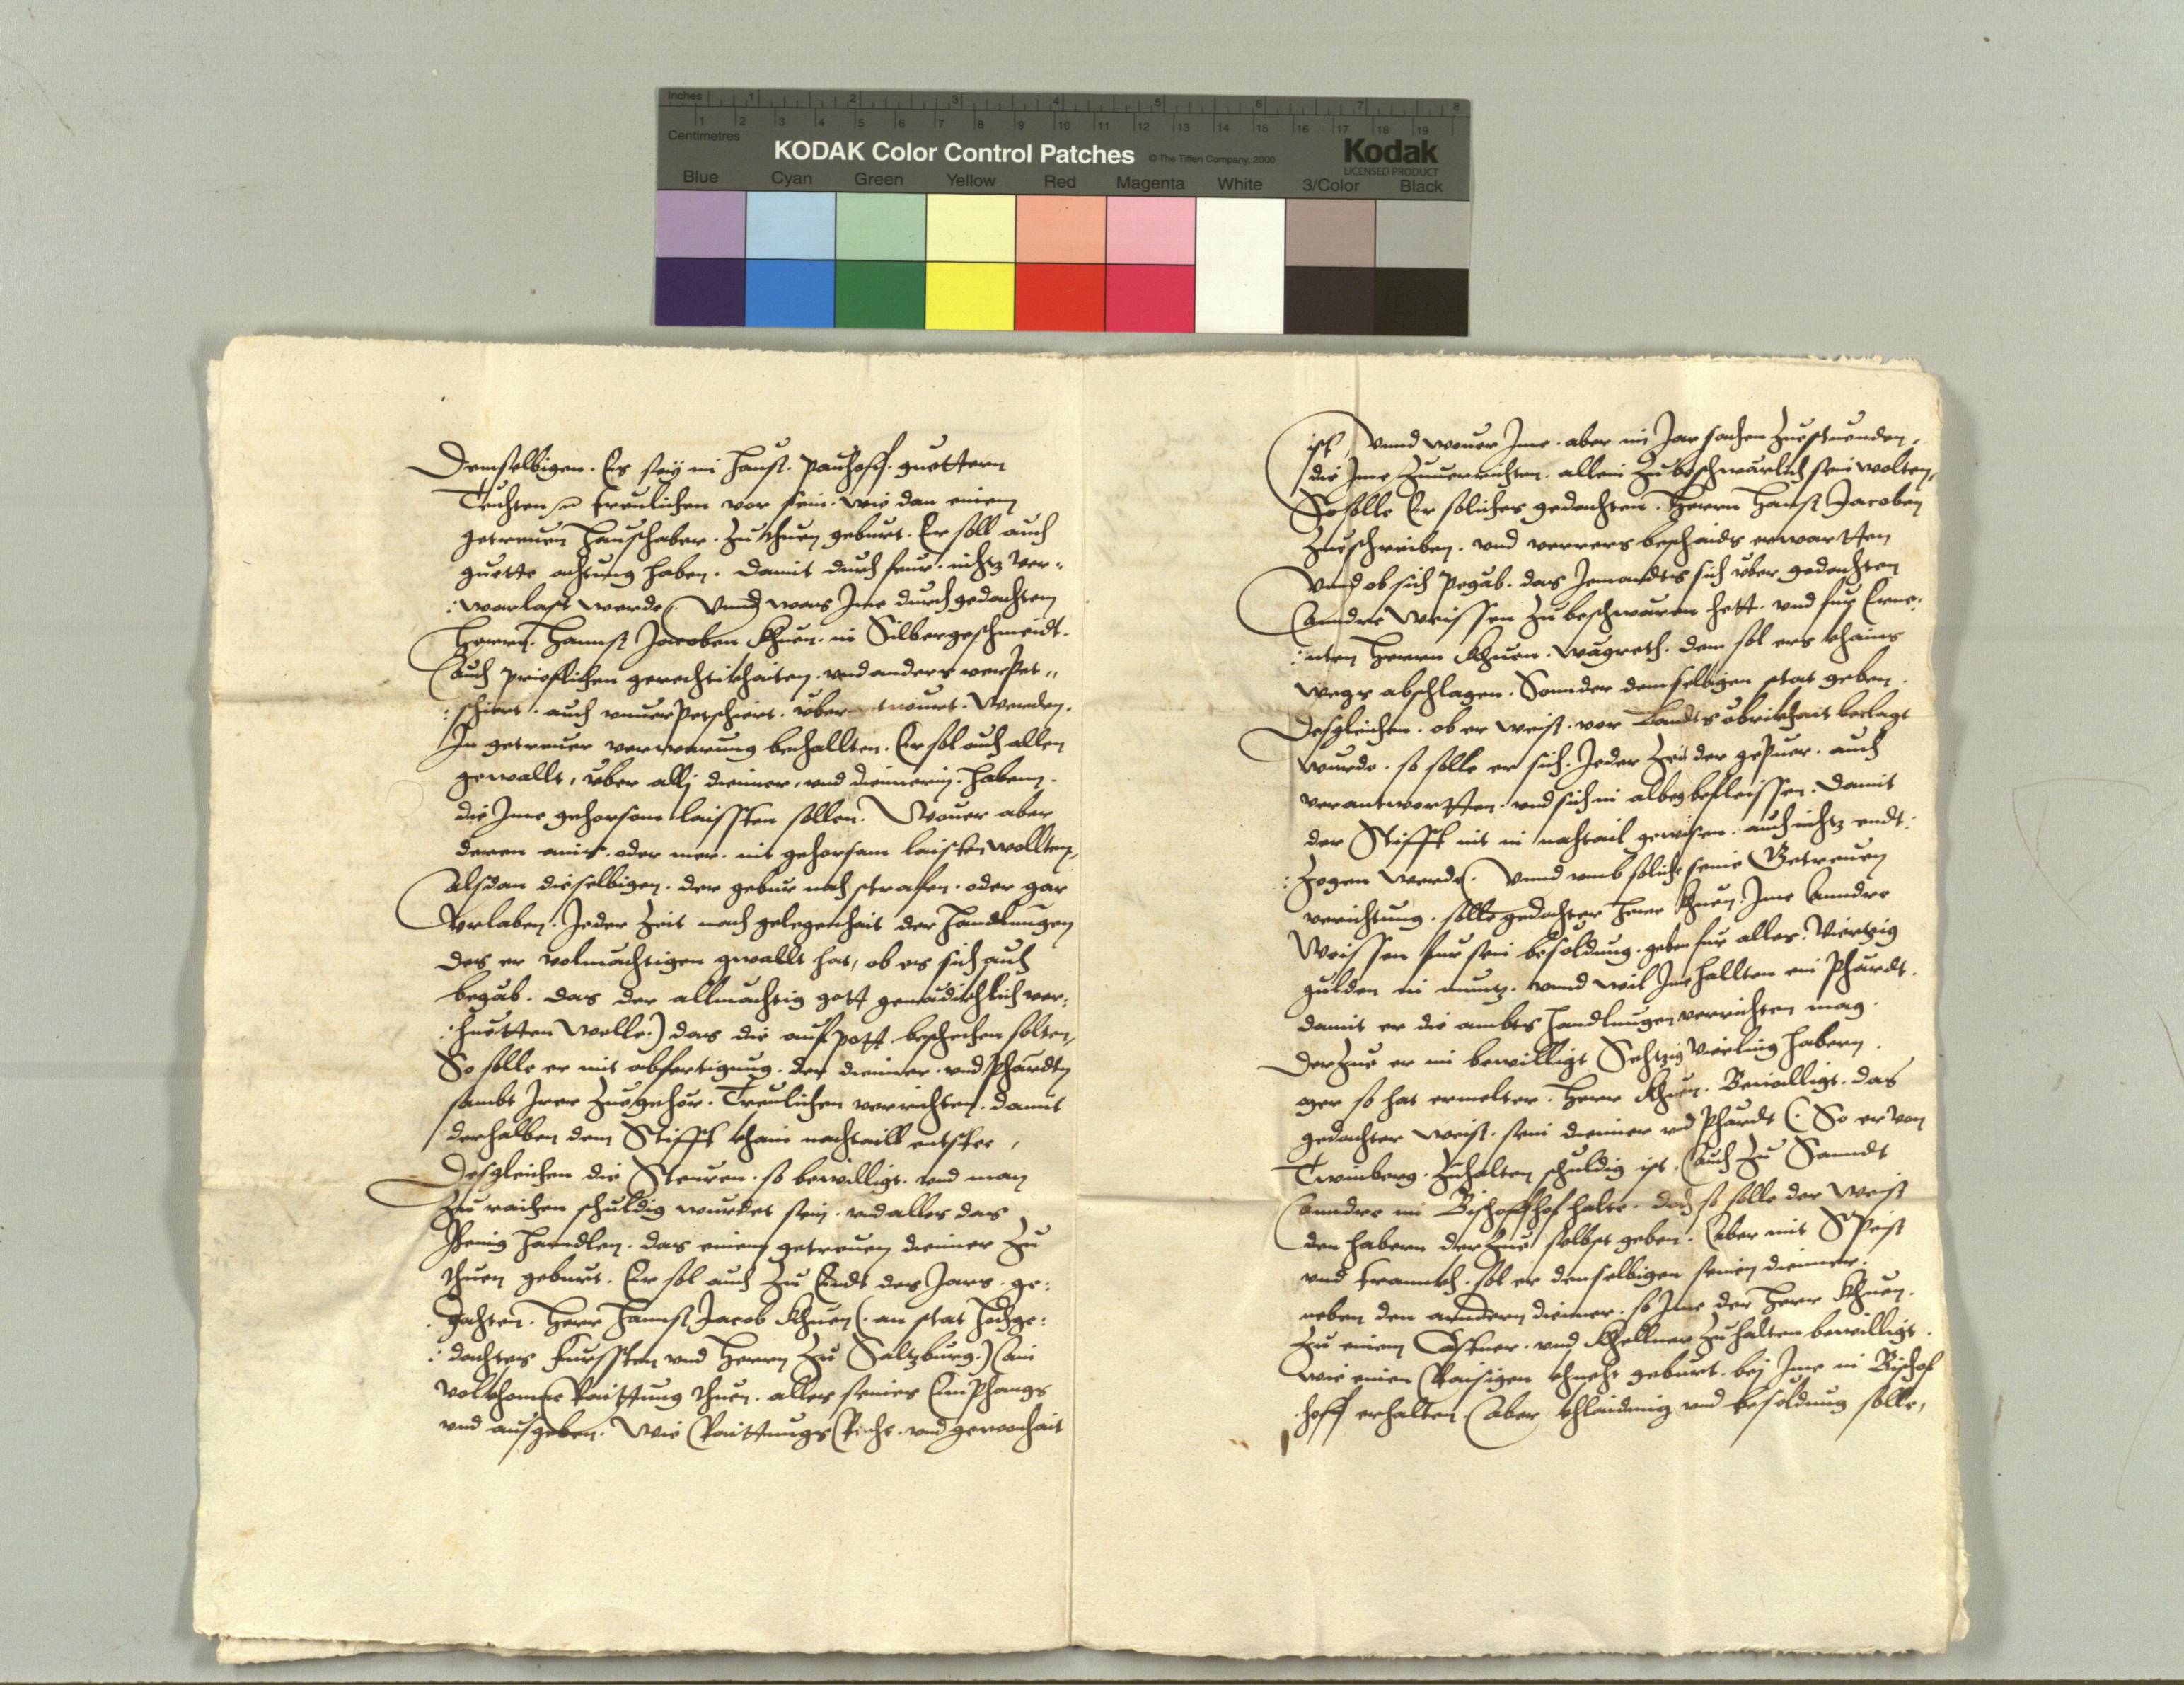 Inches 1 2 3 4 5 6 7 8
1 2 3 4 5 6 7 8 9 10 11 12 13 14 15 16 17 18 19
Centimetres
KODAK Color Control Patches © The Tiffen Company, 2000 Kodak
LICENSED PRODUCT
Blue Cyan Green Yellow Red Magenta White 3/Color Black
Demselbigen. Er seÿ in Hauß. Pauhoff. guettern
treulichen vor sein. wie dan einem
getreuen Haußhaber. zu thuen geburt. Er soll auch
guette achtung haben. damit durch feur. nichtz ver-
:warlast werde. Vnnd was Jme durch gedachten
Herrn. Hannß Jacoben Khuen. in Silbergeschmeidt.
Auch prieflichen gerechtikhaiten. vnd anders verpet-
:schiert. auch vnuerpetschiert. vberantwurt. werden.
In getreuer verwarung behallten. Er sol auch allen
gewallt, vber all dienner, vnd diennerin. haben.
die Jme gehorsam laissten sollen. Wouer aber
deren ains. oder mer. nit gehorsam laisten wollten,
Alsdan dieselbigen. der gebur nach strafen. oder gar
Vrlaben. Jeder Zeit nach gelegenhait der Handlungen
des er volmachtigen gwallt hat, ob es sich auch
begab. das der allmachtig gott genadichlich ver:
:huetten welle.) das die aufpott beschehen solten,
So solle er mit abfertigung. der dienner. vnd Phardtn
sambt Jrer Zuegehör. Treulichen verrichten. damit
derhalben dem Stifft khain nachtaill entstee,
Desgleichen die Steuren. so bewilligt. vnd man
Zu raichen schuldig wurdet sein. vnd alles das
Jhenig Handlen. das einem getreuen dienner zu
thuen geburt. Er sol auch zu Endt des Jars. ge:
dachten. Herr Hannß Jacob Khuen (. an stat Hochge:
:dachtes Furssten vnd Herrn zu Saltzburg.) Ain
volkhomne Raittung thuen. alles seines Emphangs
vnd ausgeben. Wie Raittungs Rechts. vnd gewonhait
ist, Vnnd wouer Jme. aber im Jar sachen Zuestuenden,
die Jme Zuuerrichten. allein zu beschwärlich sein wolten,
So solle Er soliches gedachten. Herrn Hannß Jacoben
Zueschreiben. vnd verrers beschaids erwartten
Vnnd ob sich Begab. das Jemandts sich vber gedachten
Anndre Weissen zu beschwären hett. vnd fur Erne:
:nten Herrn Khuen. wagreth. dem sol ers khains
wegs abschlagen. Sonnder demselbigen stat geben.
Desgleichen. ob er Weiß. vor Landts obrikhait beclagt
wurde. so solle er sich. Jeder Zeit der gepuer. auch
verantwortten. vnd sich in albeg befleissen. damit
der Stifft nit in nachtail gewisen. auch nichtz endt:
:zogen werde. Vnnd vmb soliche seine Getreuen
verichtung. solle gedachter Herr Khuen. Jme Anndre
Weissen fur sein besoldung. geben fur alles. Viertzig
gulden in muntz. vnnd wil Jme hallten ein Phardt.
damit er die ambts Handlungen verrichten mag.
Darzue er im bewilligt Sechtzig Vierling Habern.
so hat ermelter. Herr Khuen. Bewilligt. das
gedachter Weiß. sein dienner vnd Phardt (. So er von
Twinberg. Zuhalten schuldig ist. Auch zu Sanndt
Anndre im Bischoffhof halte. doch so solle der Weiß
den habern darzue selbst geben. Aber mit Speiß
vnd Trannckh. sol er denselbigen seinen dienner.
neben den anndern dienner. so Jme der Herr Khuen.
Zu einem Casstner. vnd Khellner Zuhalten bewilligt.
Wie einem Raisigen khnecht geburt. bej Jme in Bischof
:hoff erhalten. Aber khlaidung vnd besoldung solle,